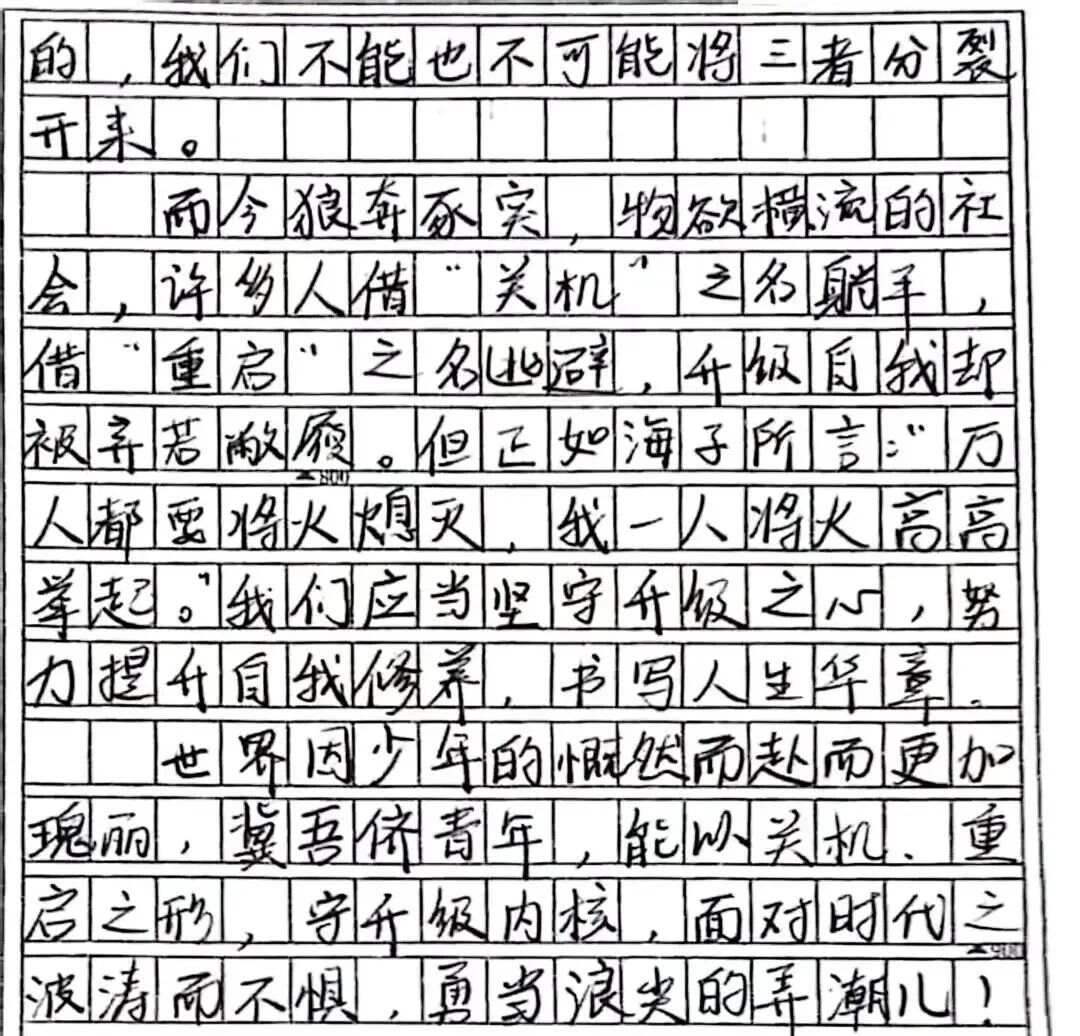 的，我们不能也不可能将三者分裂
开来。
而今狼奔豕突，物欲横流的社
会，许多人借“关机”之名躺平，
借“重启”之名逃避，升级自我却
被弃若敝屣。但正如海子所言：“万
▲800
人都要将火熄灭，我一人将火高高
举起。”我们应当坚守升级之心，努
力提升自我修养，书写人生华章。
世界因少年的慨然而赴而更加
瑰丽，冀吾侪青年，能以关机、重
启之形，守升级内核，面对时代之
▲900
波涛而不惧，勇当浪尖的弄潮儿！